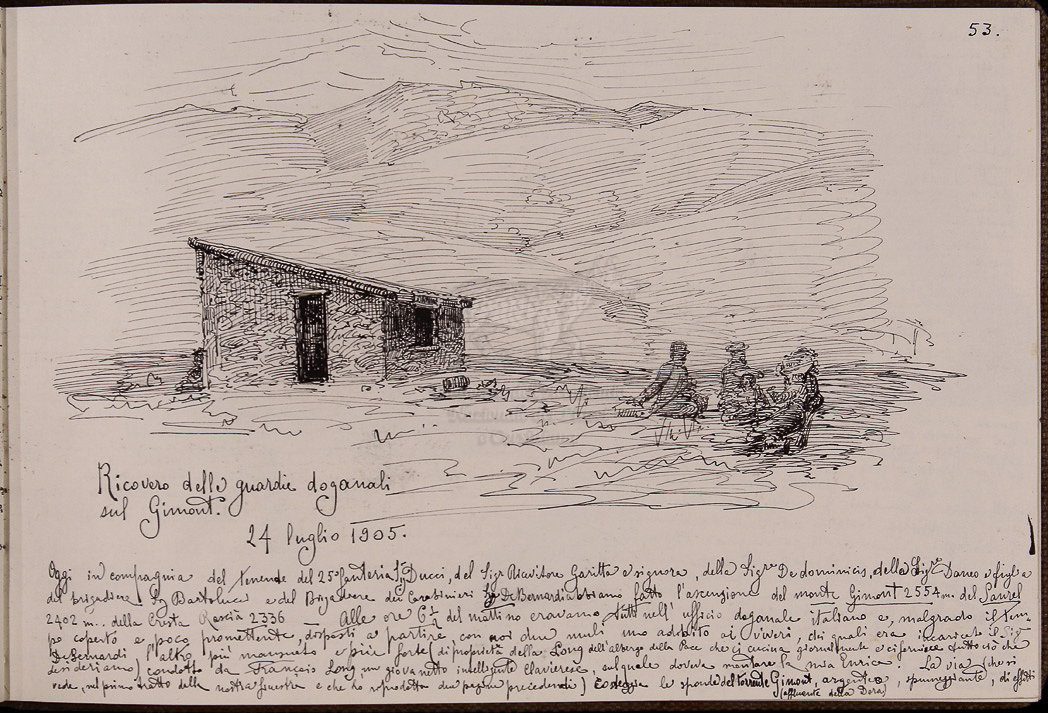 53.
Ricovero delle guardie doganali
sul Gimont.
24 luglio 1905.
Oggi in compagnia del tenente del 25° fanteria Sigr Ducci, del Sigr Ricevitore Garitta e signora, della Sigra De dominicis, della Sigra Daneo e figlia
del brigadiere Sigr Bartolucci e del Brigadiere dei Carabinieri Sigr De Bernardi abbiamo fatto l'ascensione del monte Gimont 2554 m. del Saurel
2402 m.. della Cresta Rascià 2336 _ Alle ore 6 ½ del mattino eravamo tutti nell'ufficio doganale italiano e, malgrado il tem-
po coperto e poco promettente, disposti a partire, con noi due muli uno addetto ai viveri, dei quali era incaricato il Sigr
De Bernardi l'altro più mansueto e più forte (di proprietà della Long dell'albergo della Pace che ci cucina giornalmente e ci fornisce tutto ciò che
desideriamo) condotto da François Long, un giovanetto intelligente clavierese, sul quale doveva montare la mia Enrica. La via (che si
vede, nel primo tratto dalla nostra finestra e che ho riprodotto due pagine precedenti) costeggia le sponde del torrente Gimont, argenteo, spumeggiante,
(affluente della Dora)